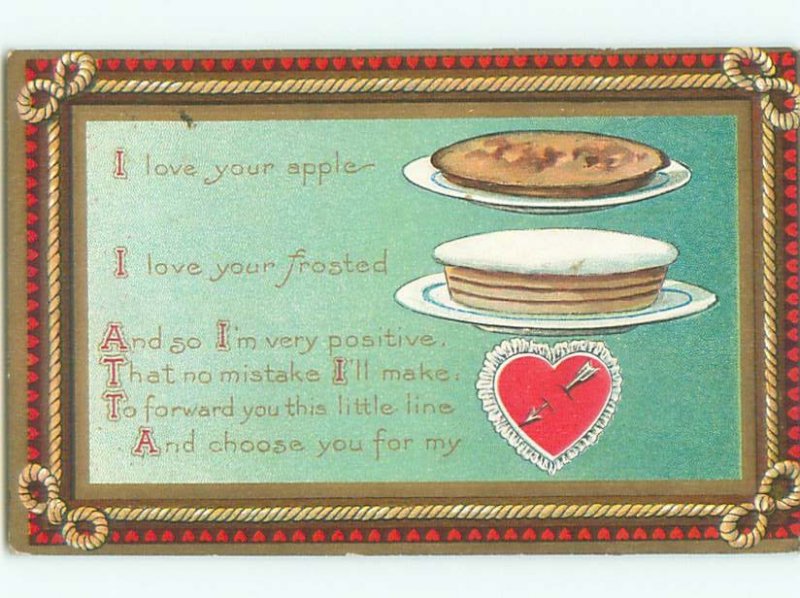 I love your apple
I love your frosted
And so I'm very positive.
That no mistake I'll make.
To forward you this little line
And choose you for my